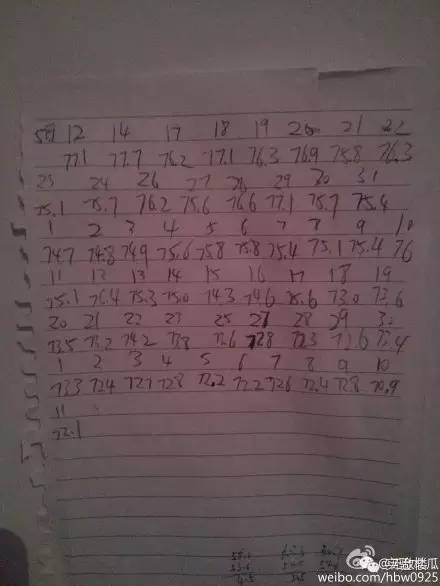 5月 12 14 17 18 19 20 21 22
77.1 77.7 76.2 77.1 76.3 76.9 75.8 76.3
23 24 26 27 28 29 30 31
75.1 75.7 76.2 75.6 76.6 77.1 75.7 75.4
1 2 3 4 5 6 7 8 9 10
74.7 74.8 74.9 75.6 75.8 75.8 75.4 75.1 75.4 76
11 12 13 14 15 16 17 18 19
75.1 76.4 75.3 75.0 74.3 74.6 75.6 73.0 73.6
20 21 22 23 25 27 28 29 30
73.5 73.2 74.2 73.8 72.6 72.8 72.3
1 2 3 4 5 6 7 8 9 10
73.3 72.4 72.7 72.8 72.2 72.2 72.6 72.4 72.8 70.9
11
72.1
weibo.com/hbw0925